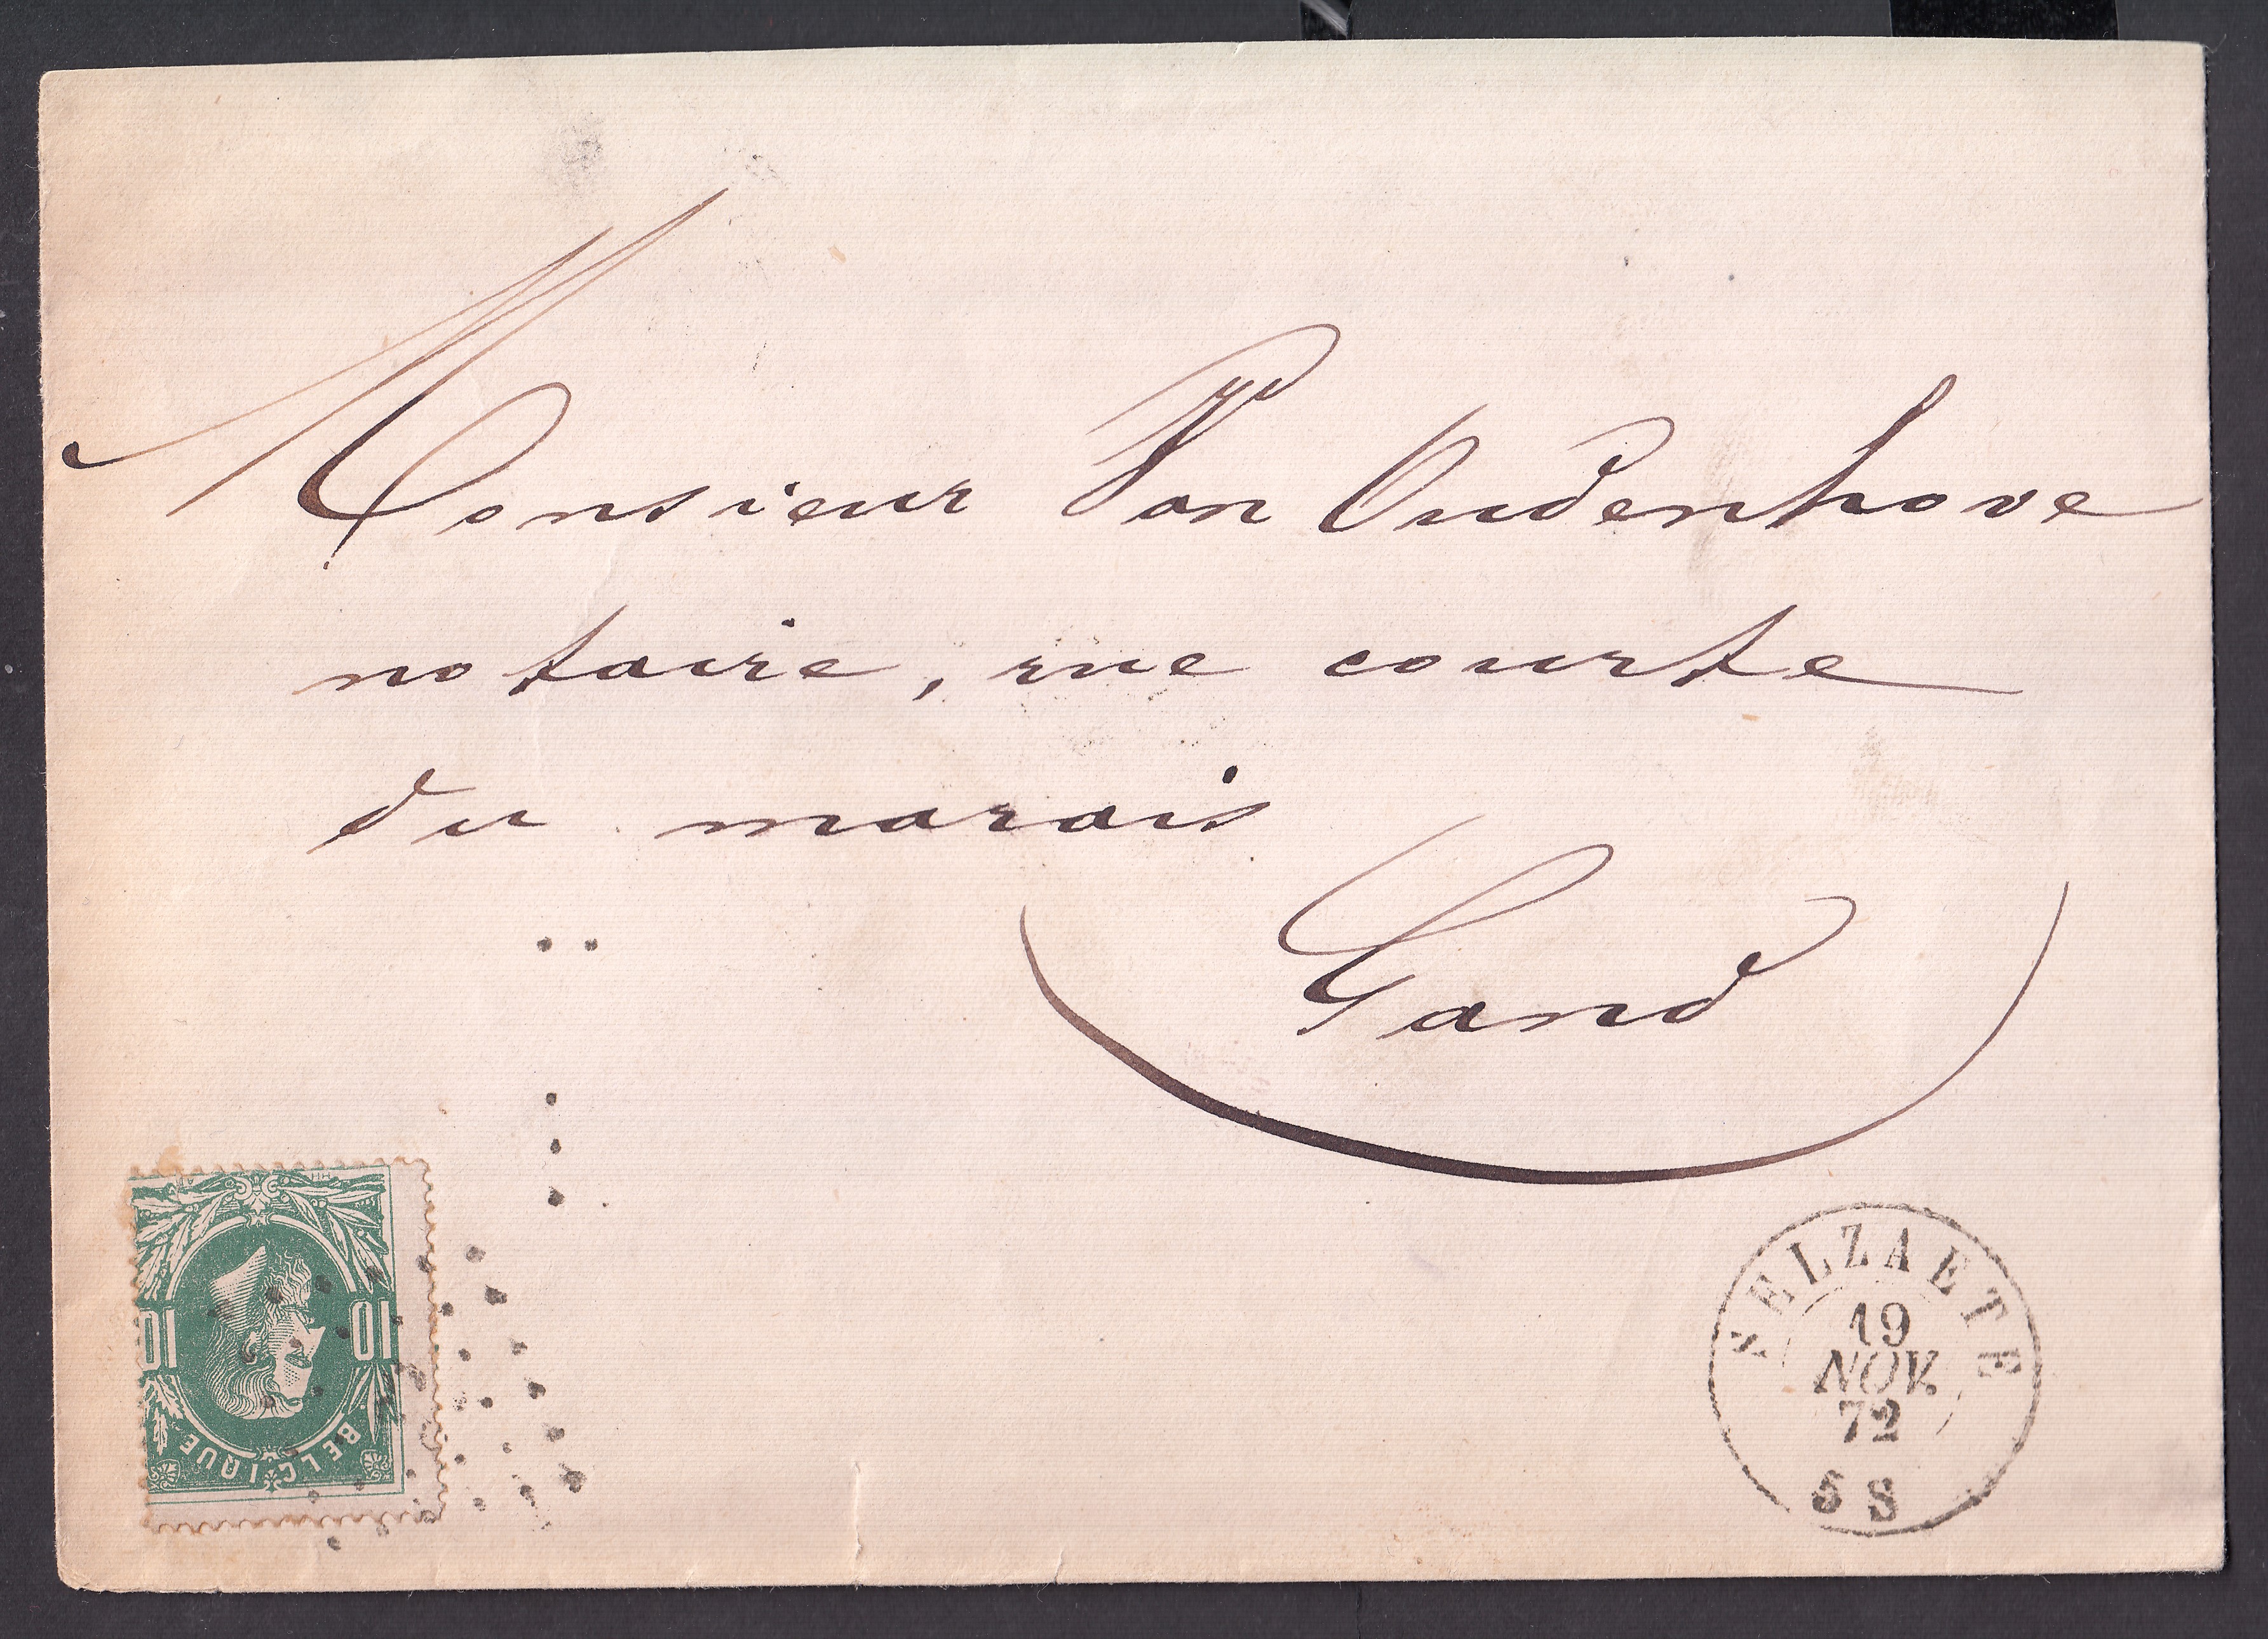 Monsieur Van Oudenhove
notaire, rue courte
du marais
Gand
SELZAETE
19
NOV.
72
5 S
10 10
BELGIQUE